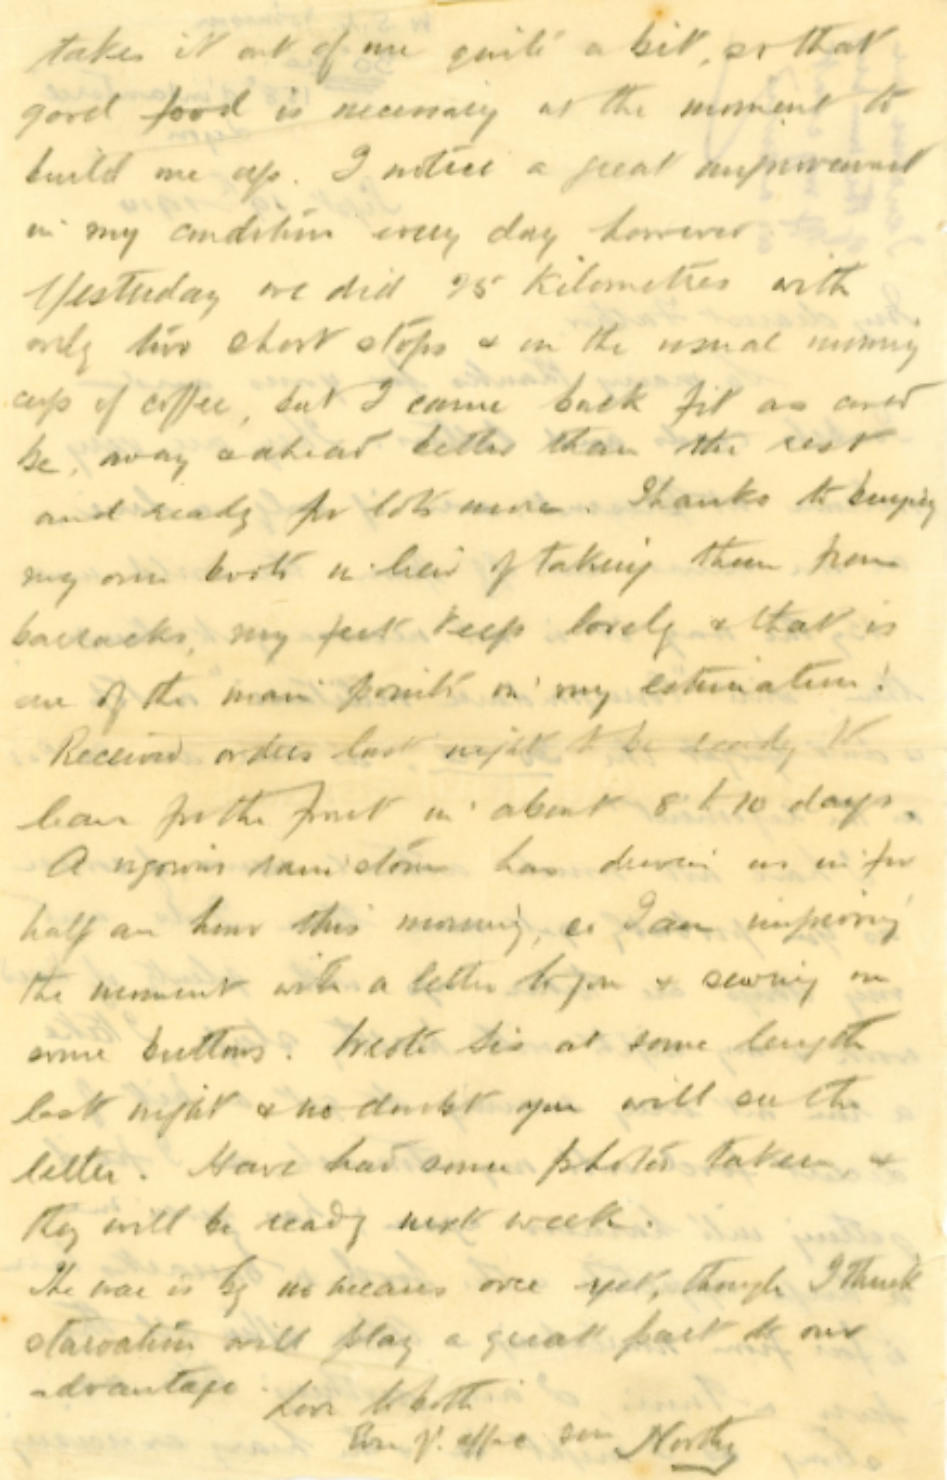 takes it out of me quite a bit, so that
good food is necessary at the moment to
build me up. I notice a great improvement
in my condition every day however
Yesterday we did 25 Kilometres with
only two short stops & on the usual morning
cup of coffee, but I came back fit as could
be, away ahead better than the rest
and ready for lots more. Thanks to buying
my own boots in lieu of taking them from
barracks, my feet keep lovely & that is
one of the main points in my estimation!
Received orders last night to be ready to
leave for the front in about 8 to 10 days.
A rain storm has driven us in for
half an hour this morning, so I am improving
the moment with a letter to you & sewing on
some buttons. Wrote Sis at some length
last night & no doubt you will see the
letter. Have had some photos taken &
they will be ready next week.
The war is by no means over yet, though I think
starvation will play a great part to our
advantage.
Love to both
Ever yr. affec son